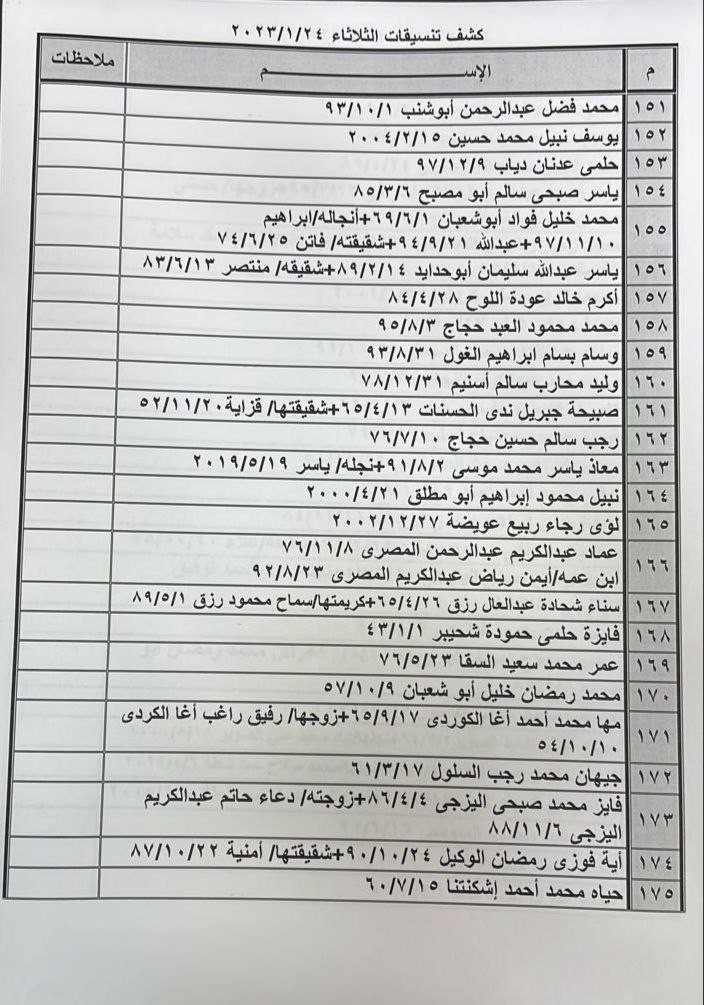 كشف تنسيقات الثلاثاء ٢٠٢٣/١/٢٤
م الإســـــم ملاحظات
١٥١ محمد فضل عبدالرحمن أبوشنب ٩٣/١٠/١
١٥٢ يوسف نبيل محمد حسين ٢٠٠٤/٢/١٥
١٥٣ حلمى عدنان دياب ٩٧/١٢/٩
١٥٤ ياسر صبحى سالم أبو مصبح ٨٥/٣/٦
١٥٥ محمد خليل فواد أبوشعبان ٦٩/٦/١+أنجاله/ابراهيم
٩٧/١١/١٠+عبدالله ٩٤/٩/٢١+شقيقته/ فاتن ٧٤/٦/٢٥
١٥٦ ياسر عبدالله سليمان أبوحدايد ٨٩/٢/١٤+شقيقه/ منتصر ٨٣/٦/١٣
١٥٧ أكرم خالد عودة اللوح ٨٤/٤/٢٨
١٥٨ محمد محمود العبد حجاج ٩٥/٨/٣
١٥٩ وسام بسام ابراهيم الغول ٩٣/٨/٣١
١٦٠ وليد محارب سالم أسنيم ٧٨/١٢/٣١
١٦١ صبيحة جبريل ندى الحسنات ٦٥/٤/١٣+شقيقتها/ قزاية٥٢/١١/٢٠
١٦٢ رجب سالم حسين حجاج ٧٦/٧/١٠
١٦٣ معاذ ياسر محمد موسى ٩١/٨/٢+نجله/ ياسر ٢٠١٩/٥/١٩
١٦٤ نبيل محمود إبراهيم أبو مطلق ٢٠٠٠/٤/٢١
١٦٥ لؤى رجاء ربيع عويضة ٢٠٠٢/١٢/٢٧
١٦٦ عماد عبدالكريم عبدالرحمن المصرى ٧٦/١١/٨
ابن عمه/أيمن رياض عبدالكريم المصرى ٩٢/٨/٢٣
١٦٧ سناء شحادة عبدالعال رزق ٦٥/٤/٢٦+كريمتها/سماح محمود رزق ٨٩/٥/١
١٦٨ فايزة حلمى حمودة شحيبر ٤٣/١/١
١٦٩ عمر محمد سعيد السقا ٧٦/٥/٢٣
١٧٠ محمد رمضان خليل أبو شعبان ٥٧/١٠/٩
١٧١ مها محمد أحمد أغا الكوردى ٦٥/٩/١٧+زوجها/ رفيق راغب أغا الكردى
٥٤/١٠/١٠
١٧٢ جيهان محمد رجب السلول ٦١/٣/١٧
١٧٣ فايز محمد صبحى اليزجى ٨٦/٤/٤+زوجته/ دعاء حاتم عبدالكريم
اليزجى ٨٨/١١/٦
١٧٤ أية فوزى رمضان الوكيل ٩٠/١٠/٢٤+شقيقتها/ أمنية ٨٧/١٠/٢٢
١٧٥ حياه محمد أحمد إشكنتنا ٦٠/٧/١٥